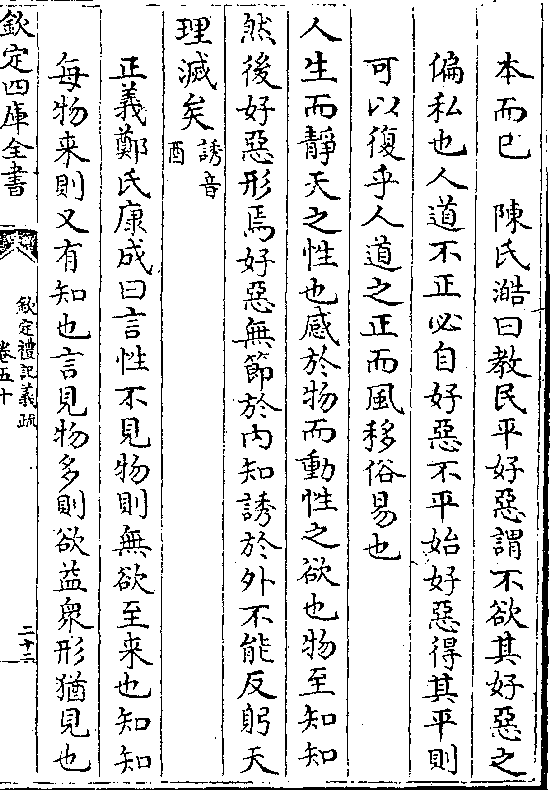 本而已　陳氏澔曰教民平好惡謂不欲其好惡之
偏私也人道不正必自好惡不平始好惡得其平則
可以復乎人道之正而風移俗易也
人生而靜天之性也感於物而動性之欲也物至知知
然後好惡形焉好惡無節於内知誘於外不能反躬天
理滅矣誘音
酉
正義鄭氏康成曰言性不見物則無欲至来也知知
每物来則又有知也言見物多則欲益衆形猶見也
欽定四庫全書
欽定禮記義疏
卷五十
二十二